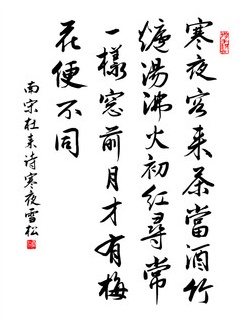 寒夜客来茶當酒竹
爐湯沸火初紅尋常
一樣窓前月才有梅
花便不同
南宋杜耒诗寒夜雪松